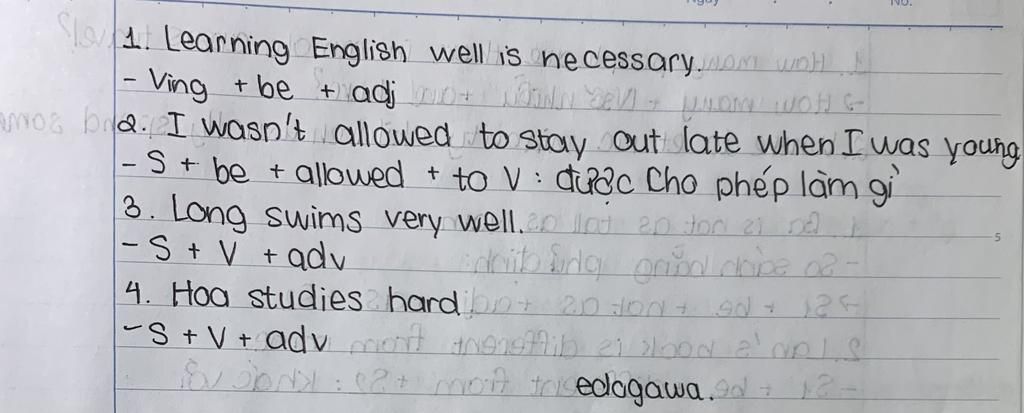 No.
1. Learning English well is necessary.
- Ving + be + adj
2. I wasn't allowed to stay out late when I was young
- S + be + allowed + to V : được cho phép làm gì
3. Long swims very well.
- S + V + adv
5
4. Hoa studies hard
- S + V + adv
edogawa.